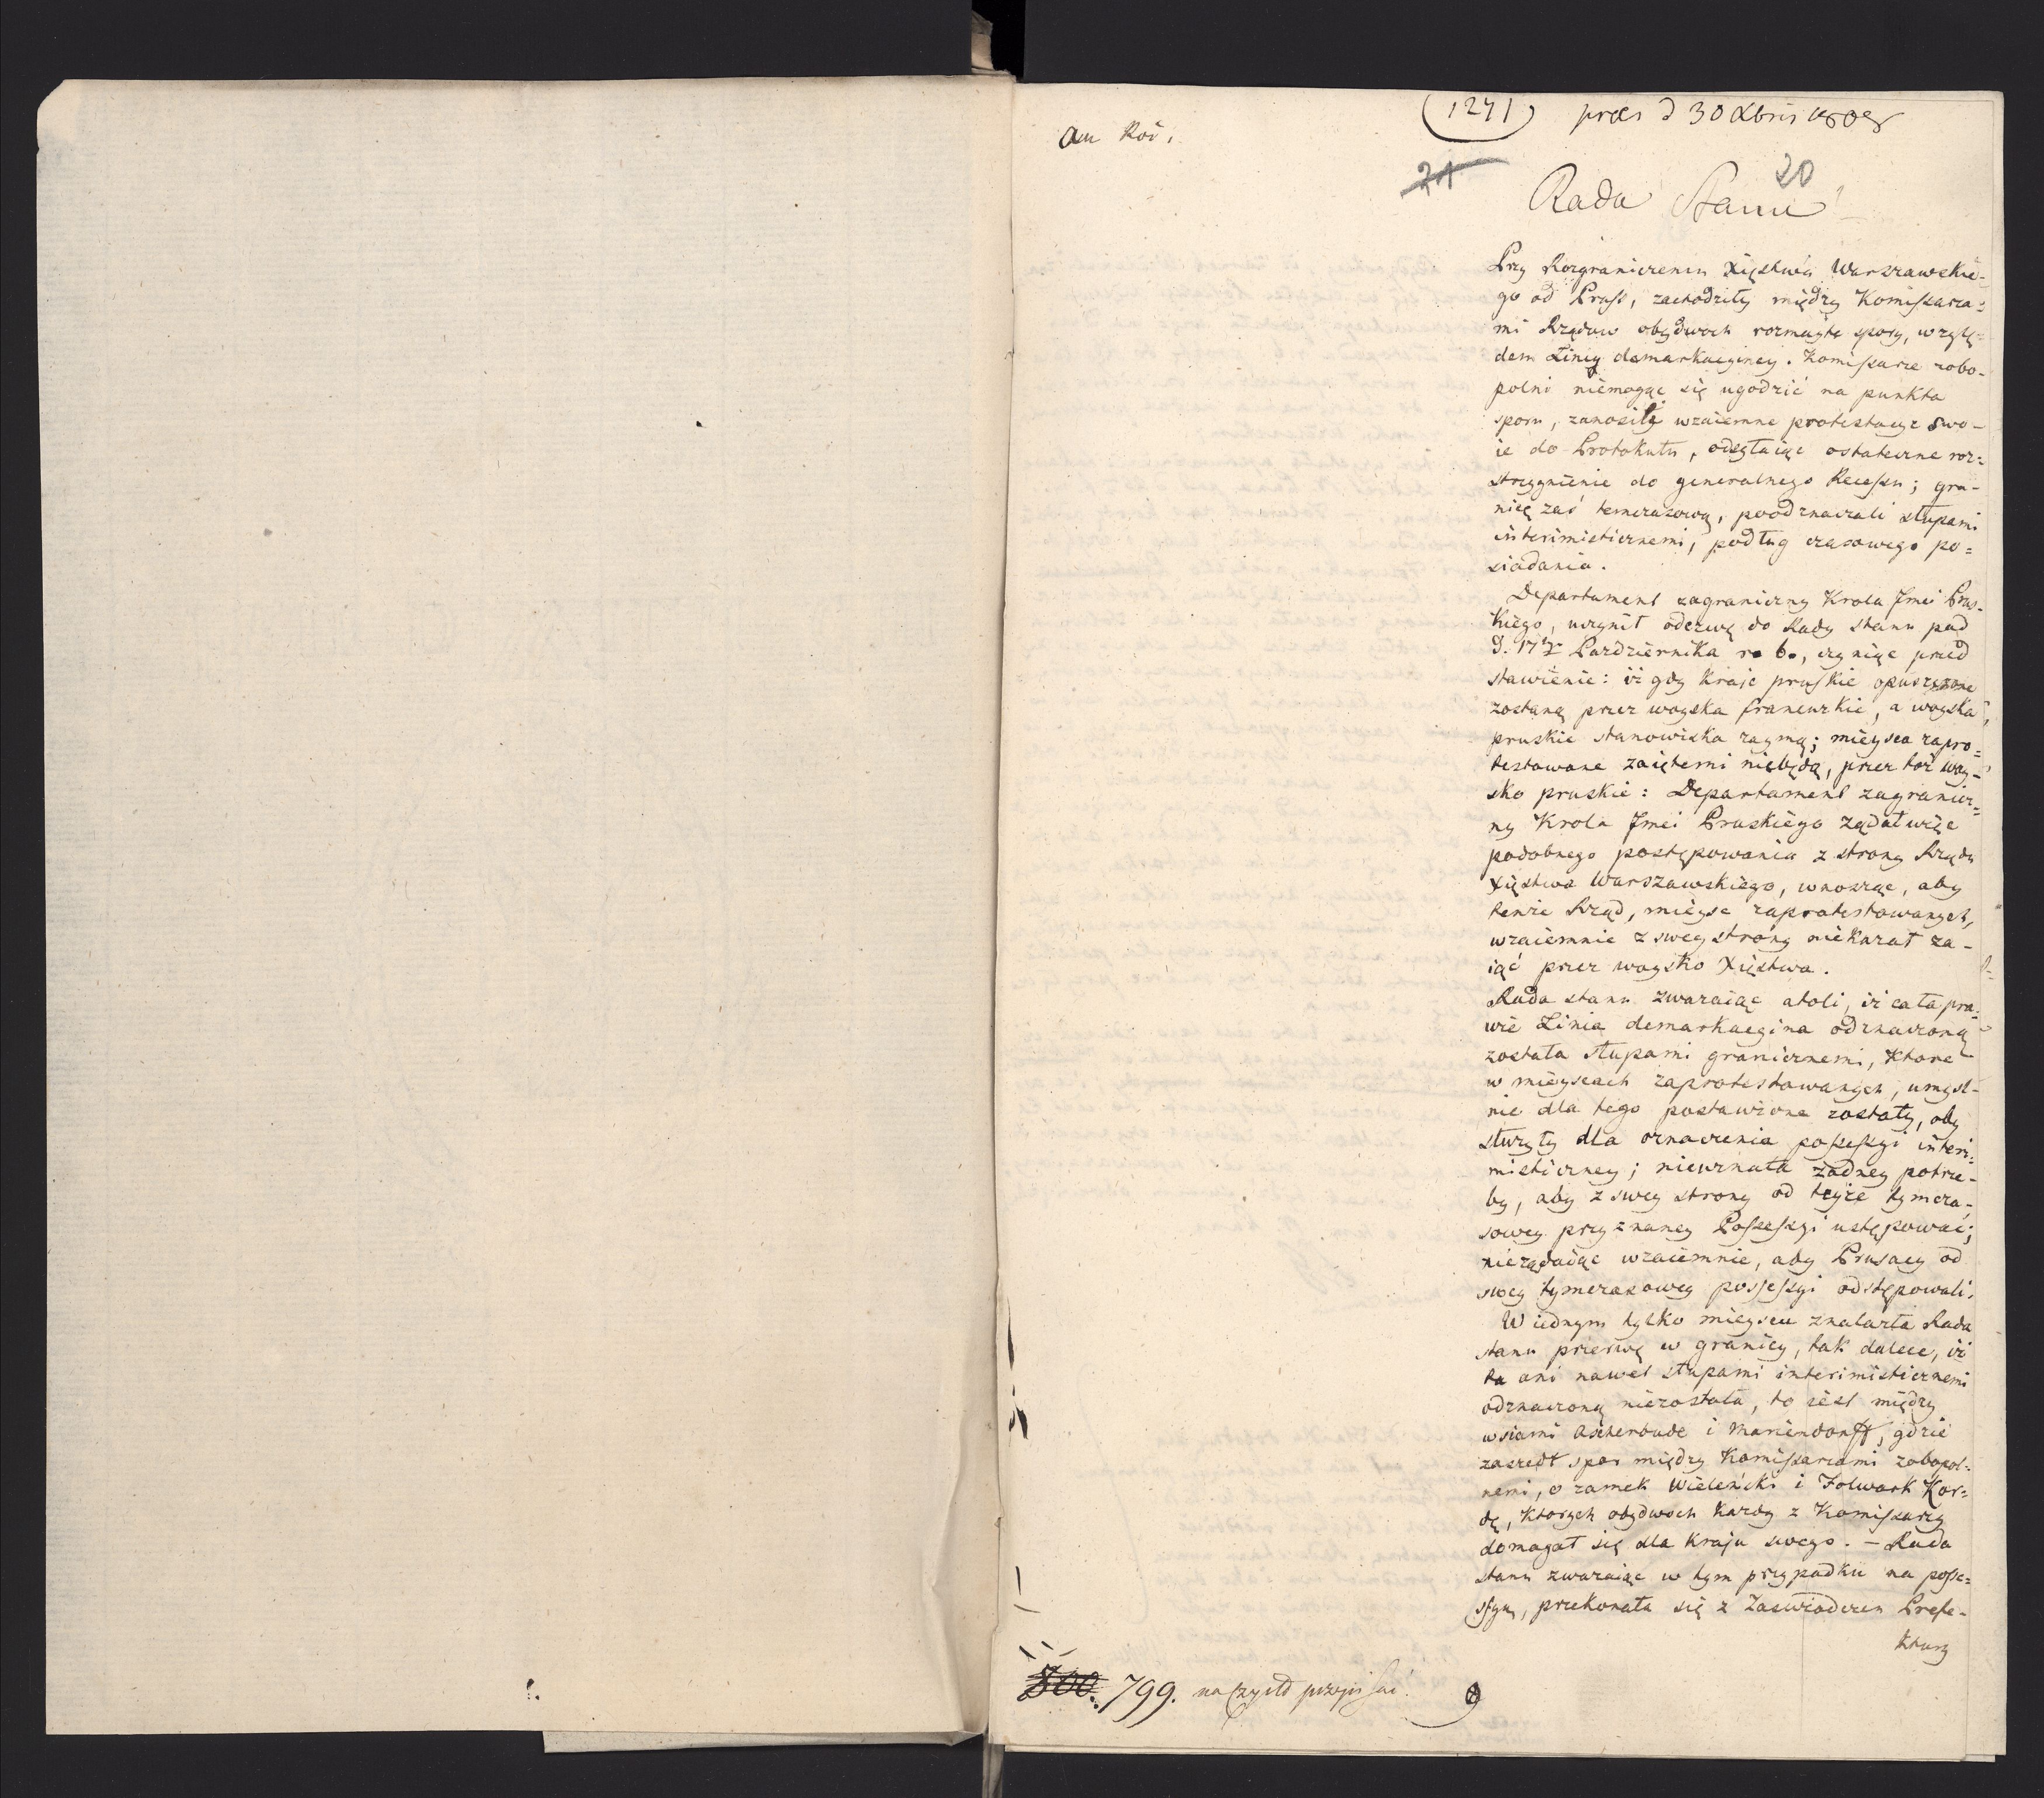 (1241) præs d 30 Xbris 1808
Au Roi.
21
20
Rada Stanu
Przy Rozgraniczeniu Xięstwa Warszawskie=
go od Pruss, zachodziły między Komissarza=
mi Rządow obydwoch rozmayte spory, wzglę=
dem Linii demarkacyiney. Komissarze zobo-
polni niemogąc się ugodzić na punkta
sporu, zanosiły wzaiemne protestacye swo-
ie do Protokułu, odsyłaiąc ostateczne roz=
strzygnienie do generalnego Recessu; gra-
nicę zaś temczasową, poodznaczali słupami
interimisticznemi, podług czasowego po=
siadania.
Departament zagraniczny Krola Jmci Prus-
kiego, uczynił odezwę do Rady stanu pod
d. 17 Pazdziernika r. b., czyniąc przed
stawienie: iż gdy kraje pruskie opuszczone
zostaną przez woyska francuzkie, a woyska
pruskie stanowiska zaymą; mieysca zapro=
testowane zaiętemi niebędą, przez toż woy=
sko pruskie: Departament zagranicz=
ny Krola Jmci Pruskiego żądał więc
podobnego postępowania z strony Rządu
Xięstwa Warszawskiego, wnosząc, aby
tenże Rząd, mieysc zaprotestowanych,
wzaiemnie z swey strony niekazał za-
iąć przez woysko Xięstwa.
Rada stanu zwazaiąc atoli, iż cała pra=
wie Linia demarkacyina odznaczoną
została słupami granicznemi, ktore
w mieyscach zaprotestowanych, umysl-
nie dla tego postawione zostały, aby
słuzyły dla oznaczenia possessyi interi=
misticzney; nieuznała żadney potrze-
by, aby z swey strony od teyże tymcza-
sowey przyznaney Possessyi ustępować;
nieządaiąc wzaiemnie, aby Prusacy od
swey tymczasowey possessyi odstępowali.
W iednym tylko mieyscu znalazła Rada
stanu przerwę w granicy, tak dalece, iż
ta ani nawet słupami interimisticznemi
odznaczoną niezostała, to iest między
wsiami Ascherbude i Mariendorff, gdzie
zaszedł spor między Komissarzami zobopol=
nemi, o zamek Wieleński i Folwark Kor=
dę, ktorych obydwoch każdy z Komissarzy
domagał się dla kraju swego. – Rada
stanu zwazaiąc w tym przypadku na posse=
ssyą, przekonała się z Zaswiadczen Prefe-
ktury
800. 799. na czysto przepisać.